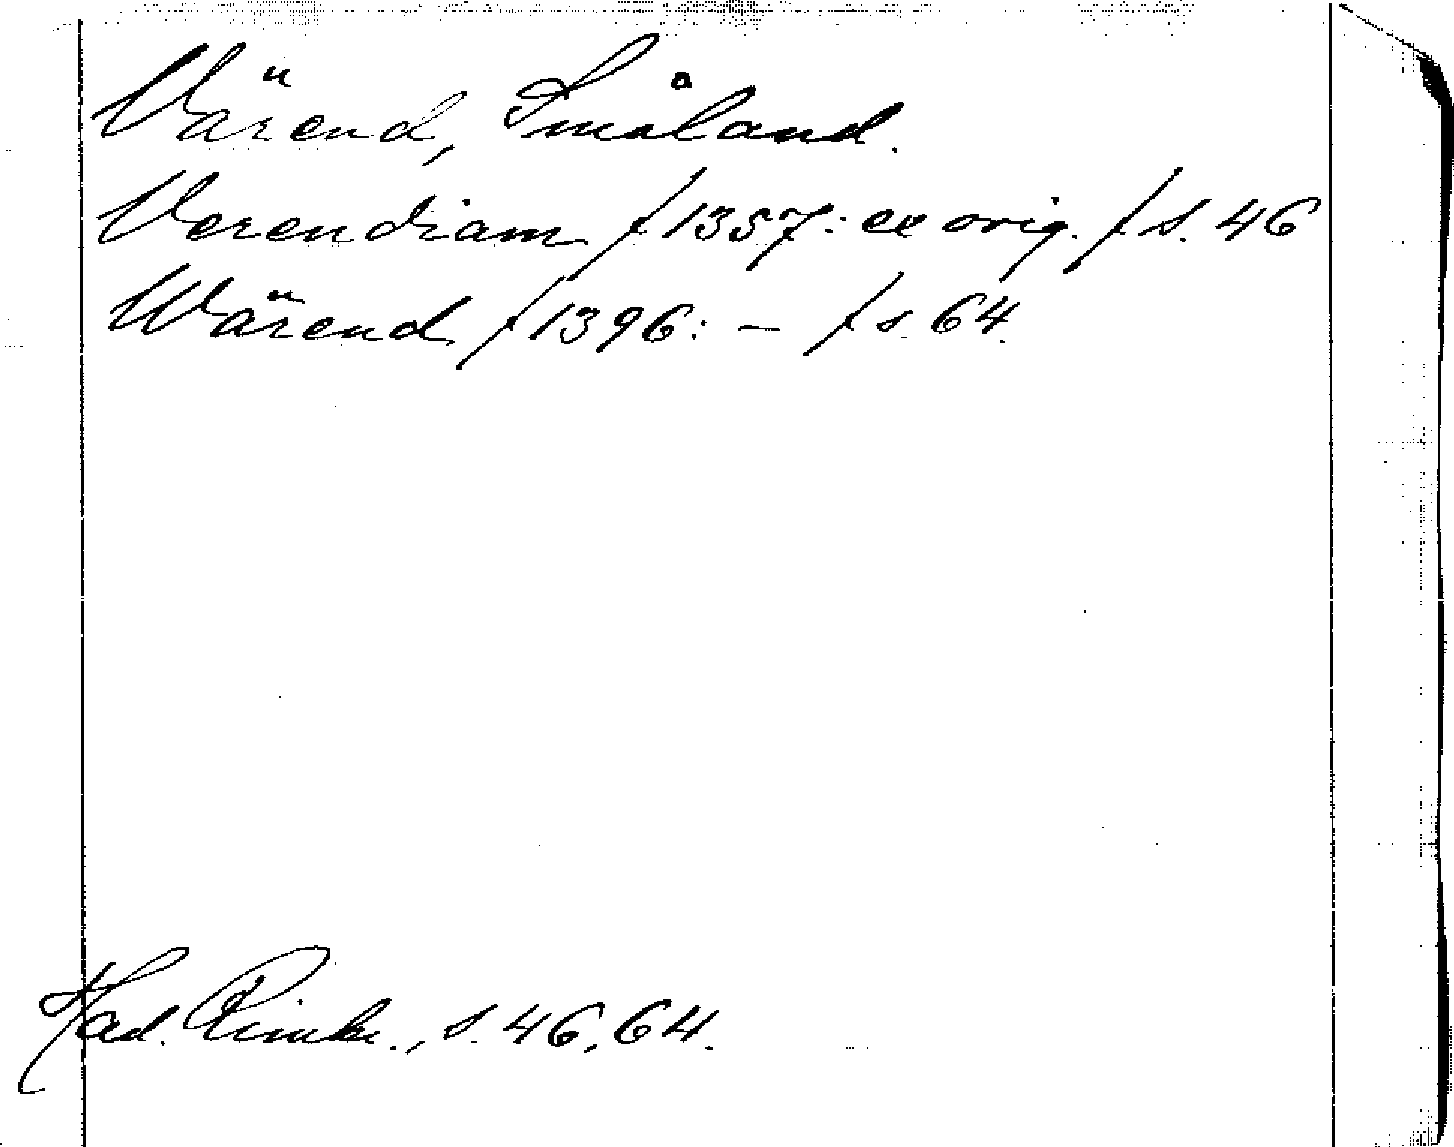 Värend, Småland.
Verendiam /1357: ex orig./ s. 46
Wärend /1396: — / s. 64.
Had. s. 46, 64.